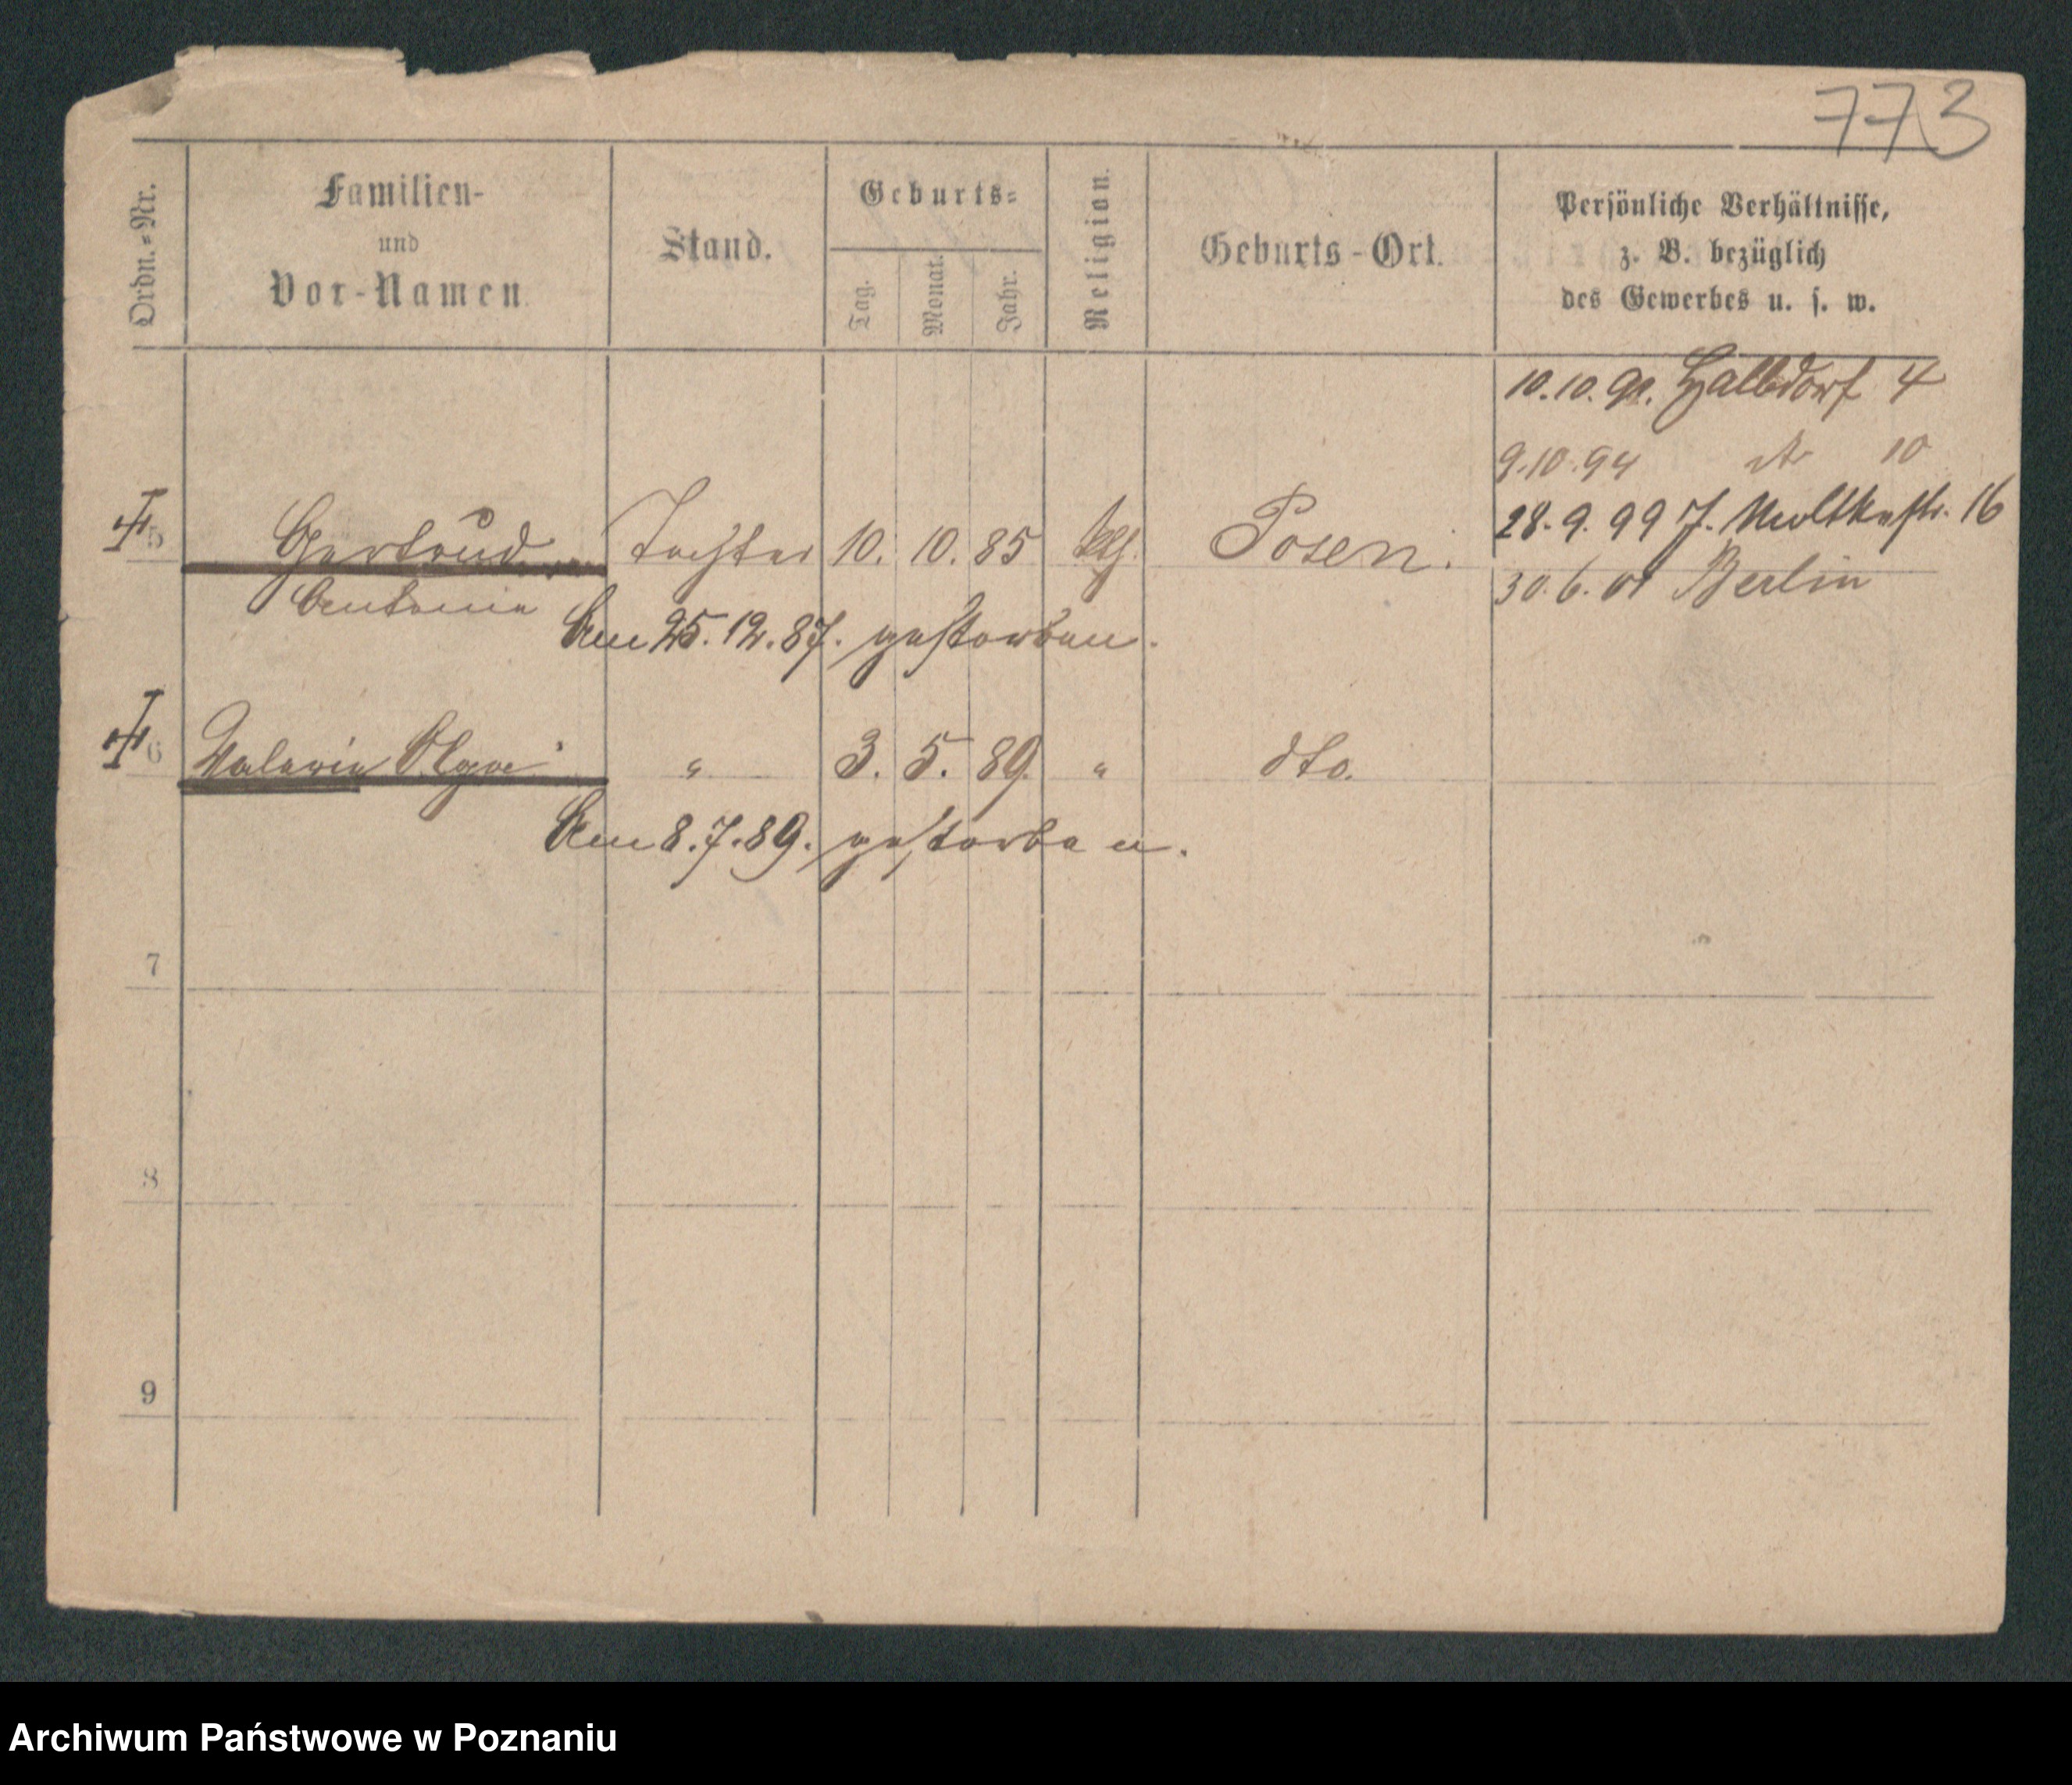 773
Ordn.=Nr.
Familien-
und
Vor-Namen
Stand.
Geburts=
Tag.
Monat.
Jahr.
Religion.
Geburts-Ort.
Persönliche Verhältnisse,
z. B. bezüglich
des Gewerbes u. s. w.
10.10.91. Halbdorf 4
9.10.94 10
28.9.99 J. Moltkestr. 16
5 Gertrud Tochter 10. 10. 85 kth. Posen.
30.6.01 Berlin
Antonie
Am 25.12.87. gestorben.
6 Valeria Olga " 3. 5. 89. " dto.
Am 8.7.89. gestorben.
7
8
9
Archiwum Państwowe w Poznaniu